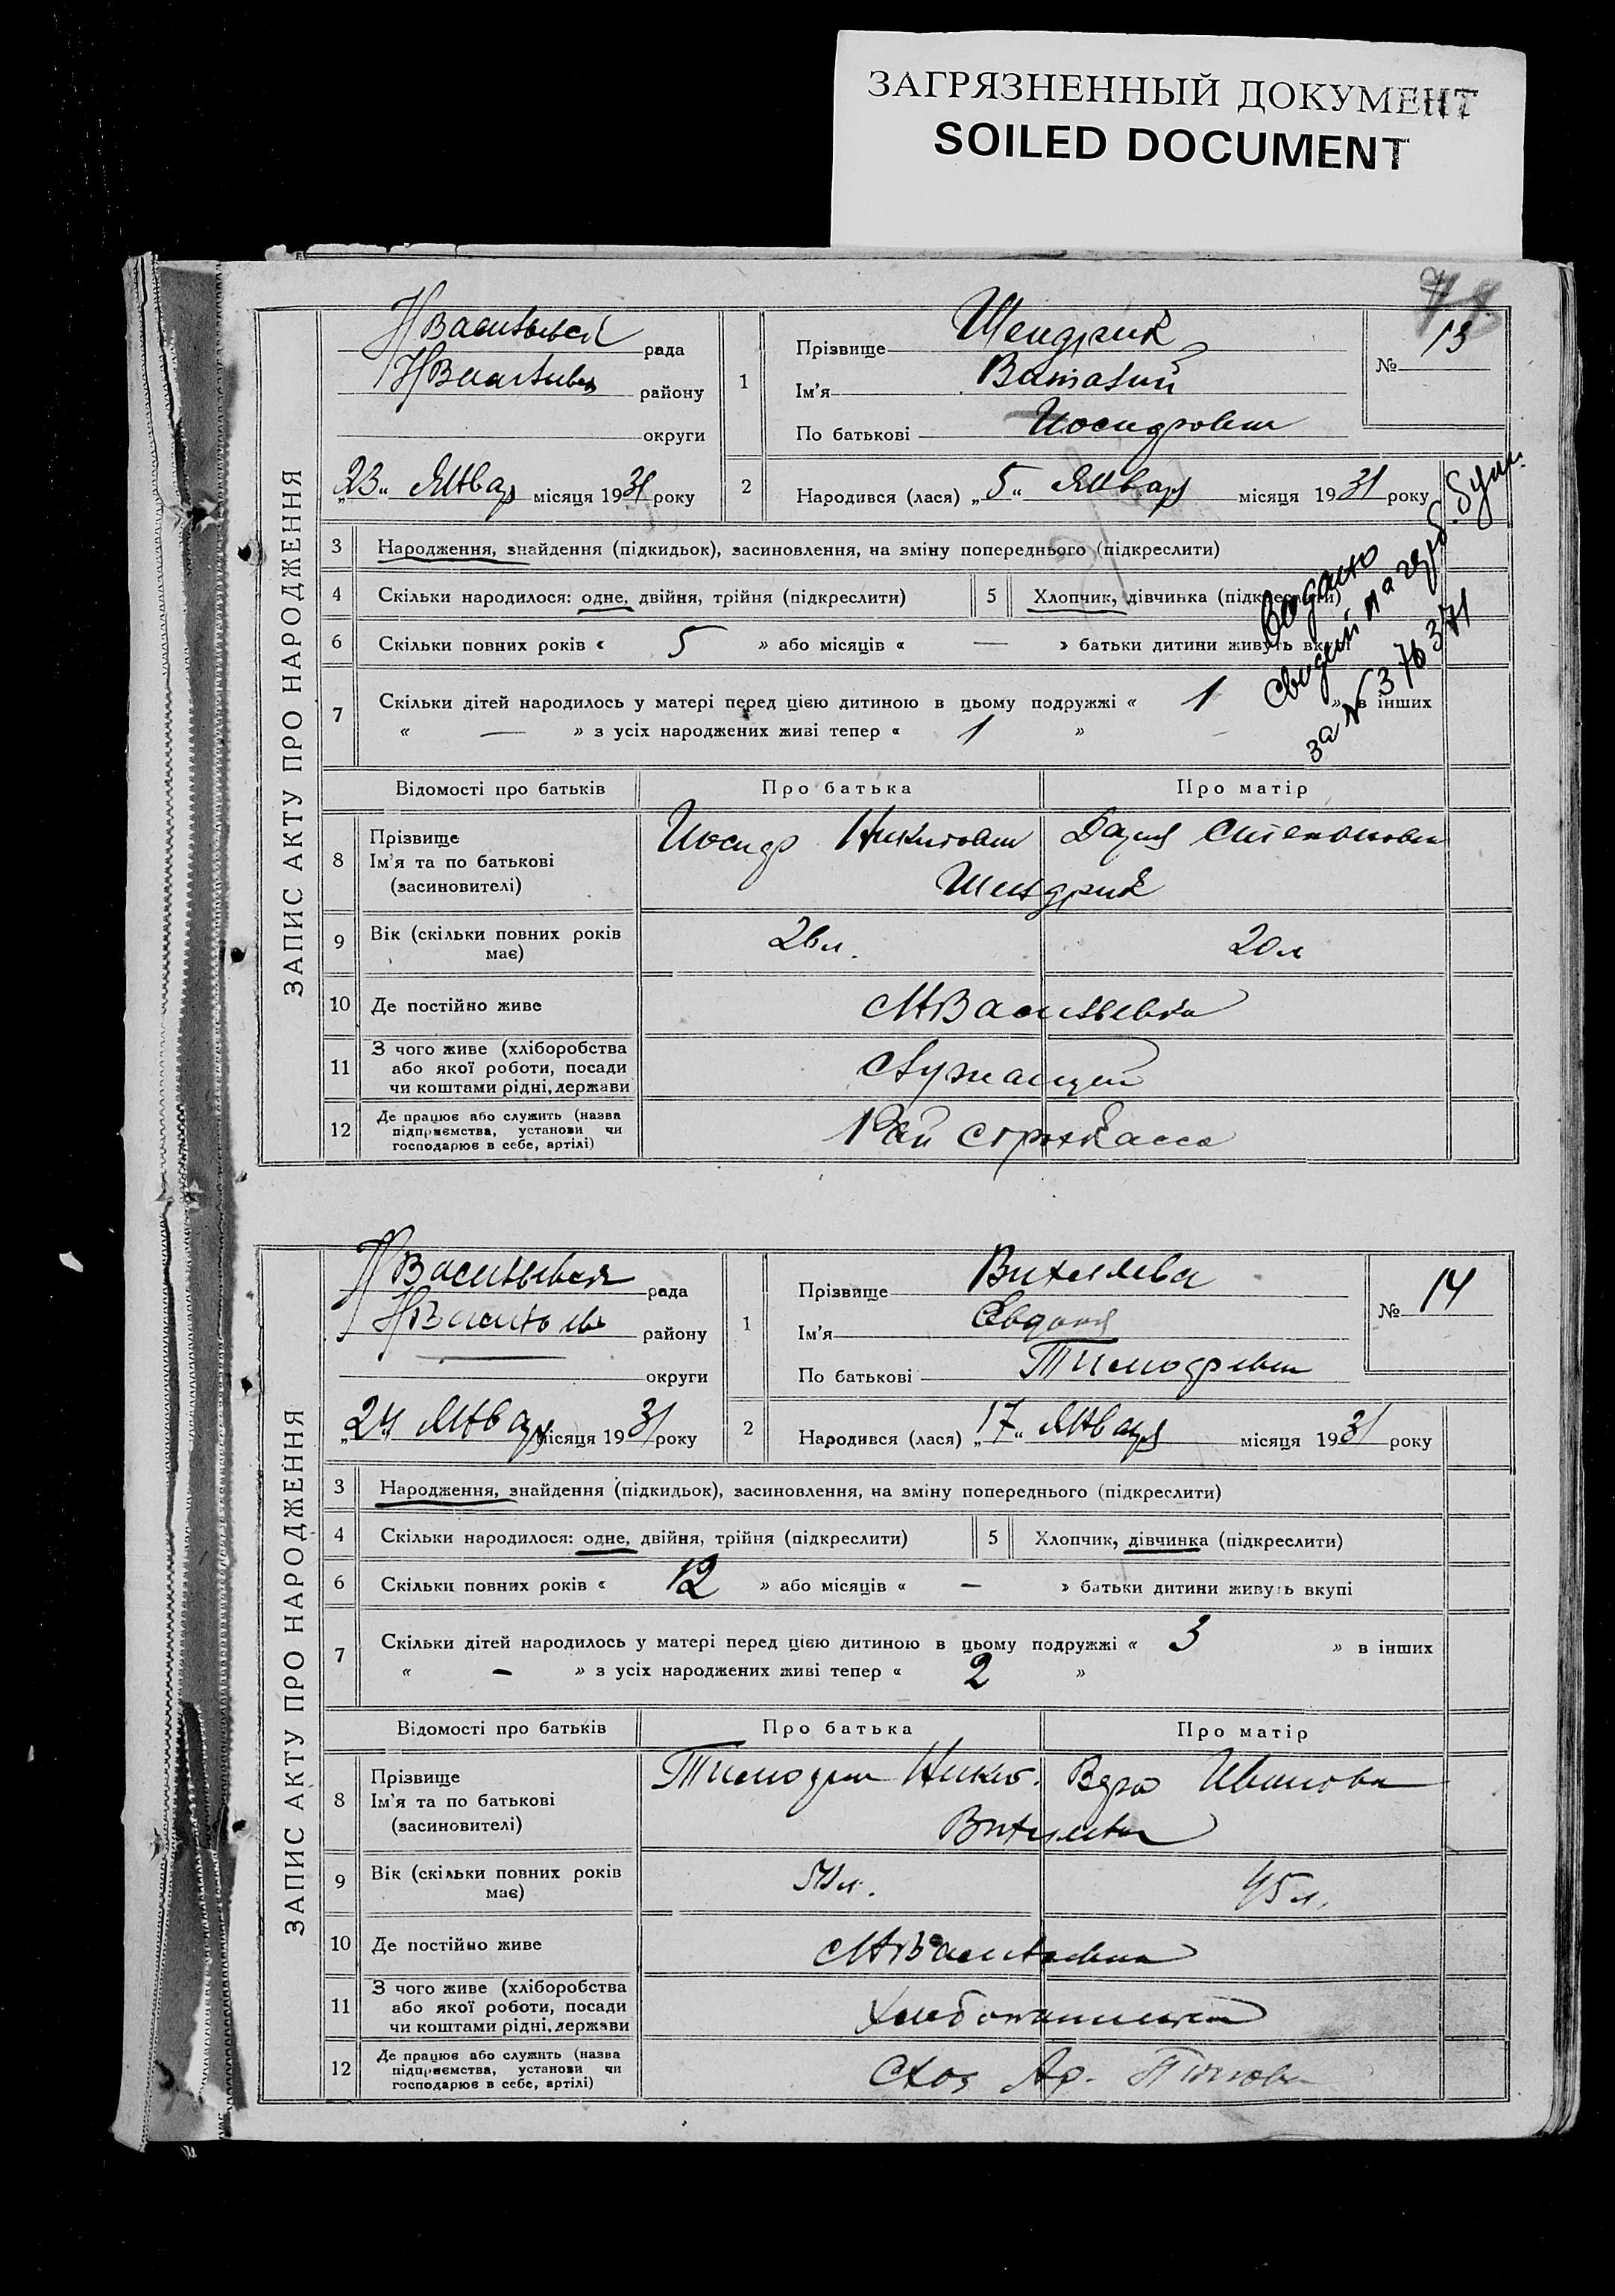 ЗАГРЯЗНЕННЫЙ ДОКУМЕНТ
SOILED DOCUMENT
ЗАПИС АКТУ ПРО НАРОДЖЕННЯ
рада
району
округи
„23“ Январ місяця 1931 року
1
Прізвище
Ім'я
По батькові Иосифович
№ 13
2
Народився (лася) „5“ Январ місяця 1931 року
3 Народження, знайдення (підкидьок), засиновлення, на зміну попереднього (підкреслити)
4 Скільки народилося: одне, двійня, трійня (підкреслити) 5 Хлопчик, дівчинка (підкреслити)
6 Скільки повних років « 5 » або місяців « — » батьки дитини живуть вкупі
7 Скільки дітей народилось у матері перед цією дитиною в цьому подружжі « 1 » в інших
« — » з усіх народжених живі тепер « 1 »
за № 376371
Відомості про батьків Про батька Про матір
8 Прізвище
Ім'я та по батькові
(засиновителі)
Иосиф Никитович Дария Степановна
9 Вік (скільки повних років має) 26 л. 20 л
10 Де постійно живе НВасильевка
11 З чого живе (хліборобства
або якої роботи, посади
чи коштами рідні, держави
Служащий
12 Де працює або служить (назва
підприємства, установи чи
господарює в себе, артілі)
Рай страхкасса
ЗАПИС АКТУ ПРО НАРОДЖЕННЯ
рада
району
округи
„24 Январ місяця 1931 року
1
Прізвище
Ім'я Евдокия
По батькові Тимофеевн
№ 14
2
Народився (лася) „17“ Января місяця 1931 року
3 Народження, знайдення (підкидьок), засиновлення, на зміну попереднього (підкреслити)
4 Скільки народилося: одне, двійня, трійня (підкреслити) 5 Хлопчик, дівчинка (підкреслити)
6 Скільки повних років « 12 » або місяців « — » батьки дитини живуть вкупі
7 Скільки дітей народилось у матері перед цією дитиною в цьому подружжі « 3 » в інших
« — » з усіх народжених живі тепер « 2 »
Відомості про батьків Про батька Про матір
8 Прізвище
Ім'я та по батькові
(засиновителі)
Тимофеи Никит. Вера Иванова
9 Вік (скільки повних років має) 45 л.
10 Де постійно живе НВасильевка
11 З чого живе (хліборобства
або якої роботи, посади
чи коштами рідні, держави
12 Де працює або служить (назва
підприємства, установи чи
господарює в себе, артілі)